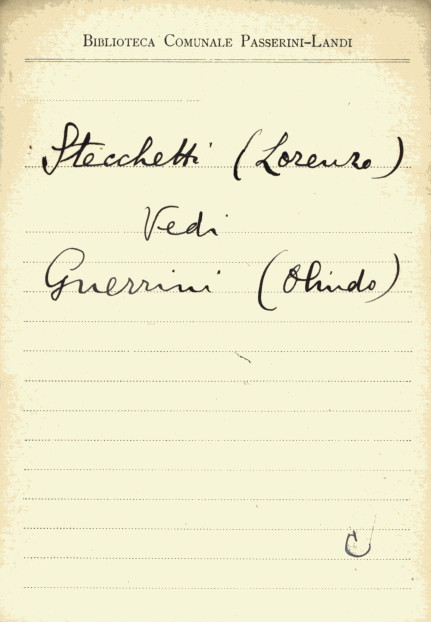 Biblioteca Comunale Passerini-Landi
Stecchetti (Lorenzo)
Vedi
Guerrini (Olindo)
C